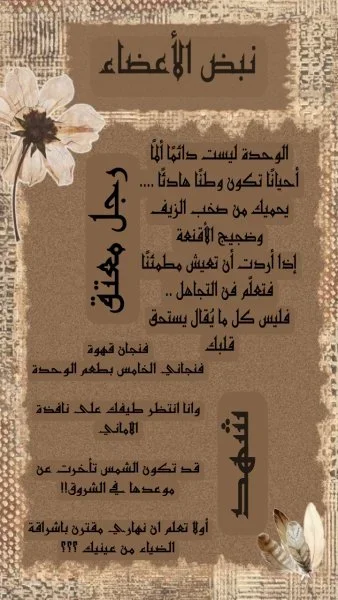 نبض الأعضاء
رجل معتق
الوحدة ليست دائمًا ألمًا
أحيانًا تكون وطنًا هادئًا ....
يحميك من صخب الزيف
وضجيج الأقنعة
إذا أردت أن تعيش مطمئنًا
فتعلّم فن التجاهل ..
فليس كل ما يُقال يستحق
قلبك
شهد
فنجان قهوة
فنجاني الخامس بطعم الوحدة
وانا انتظر طيفك على نافذة
الاماني
قد تكون الشمس تأخرت عن
موعدها في الشروق!!
أولا تعلم ان نهاري مقترن بأشراقة
الضياء من عينيك ؟؟؟